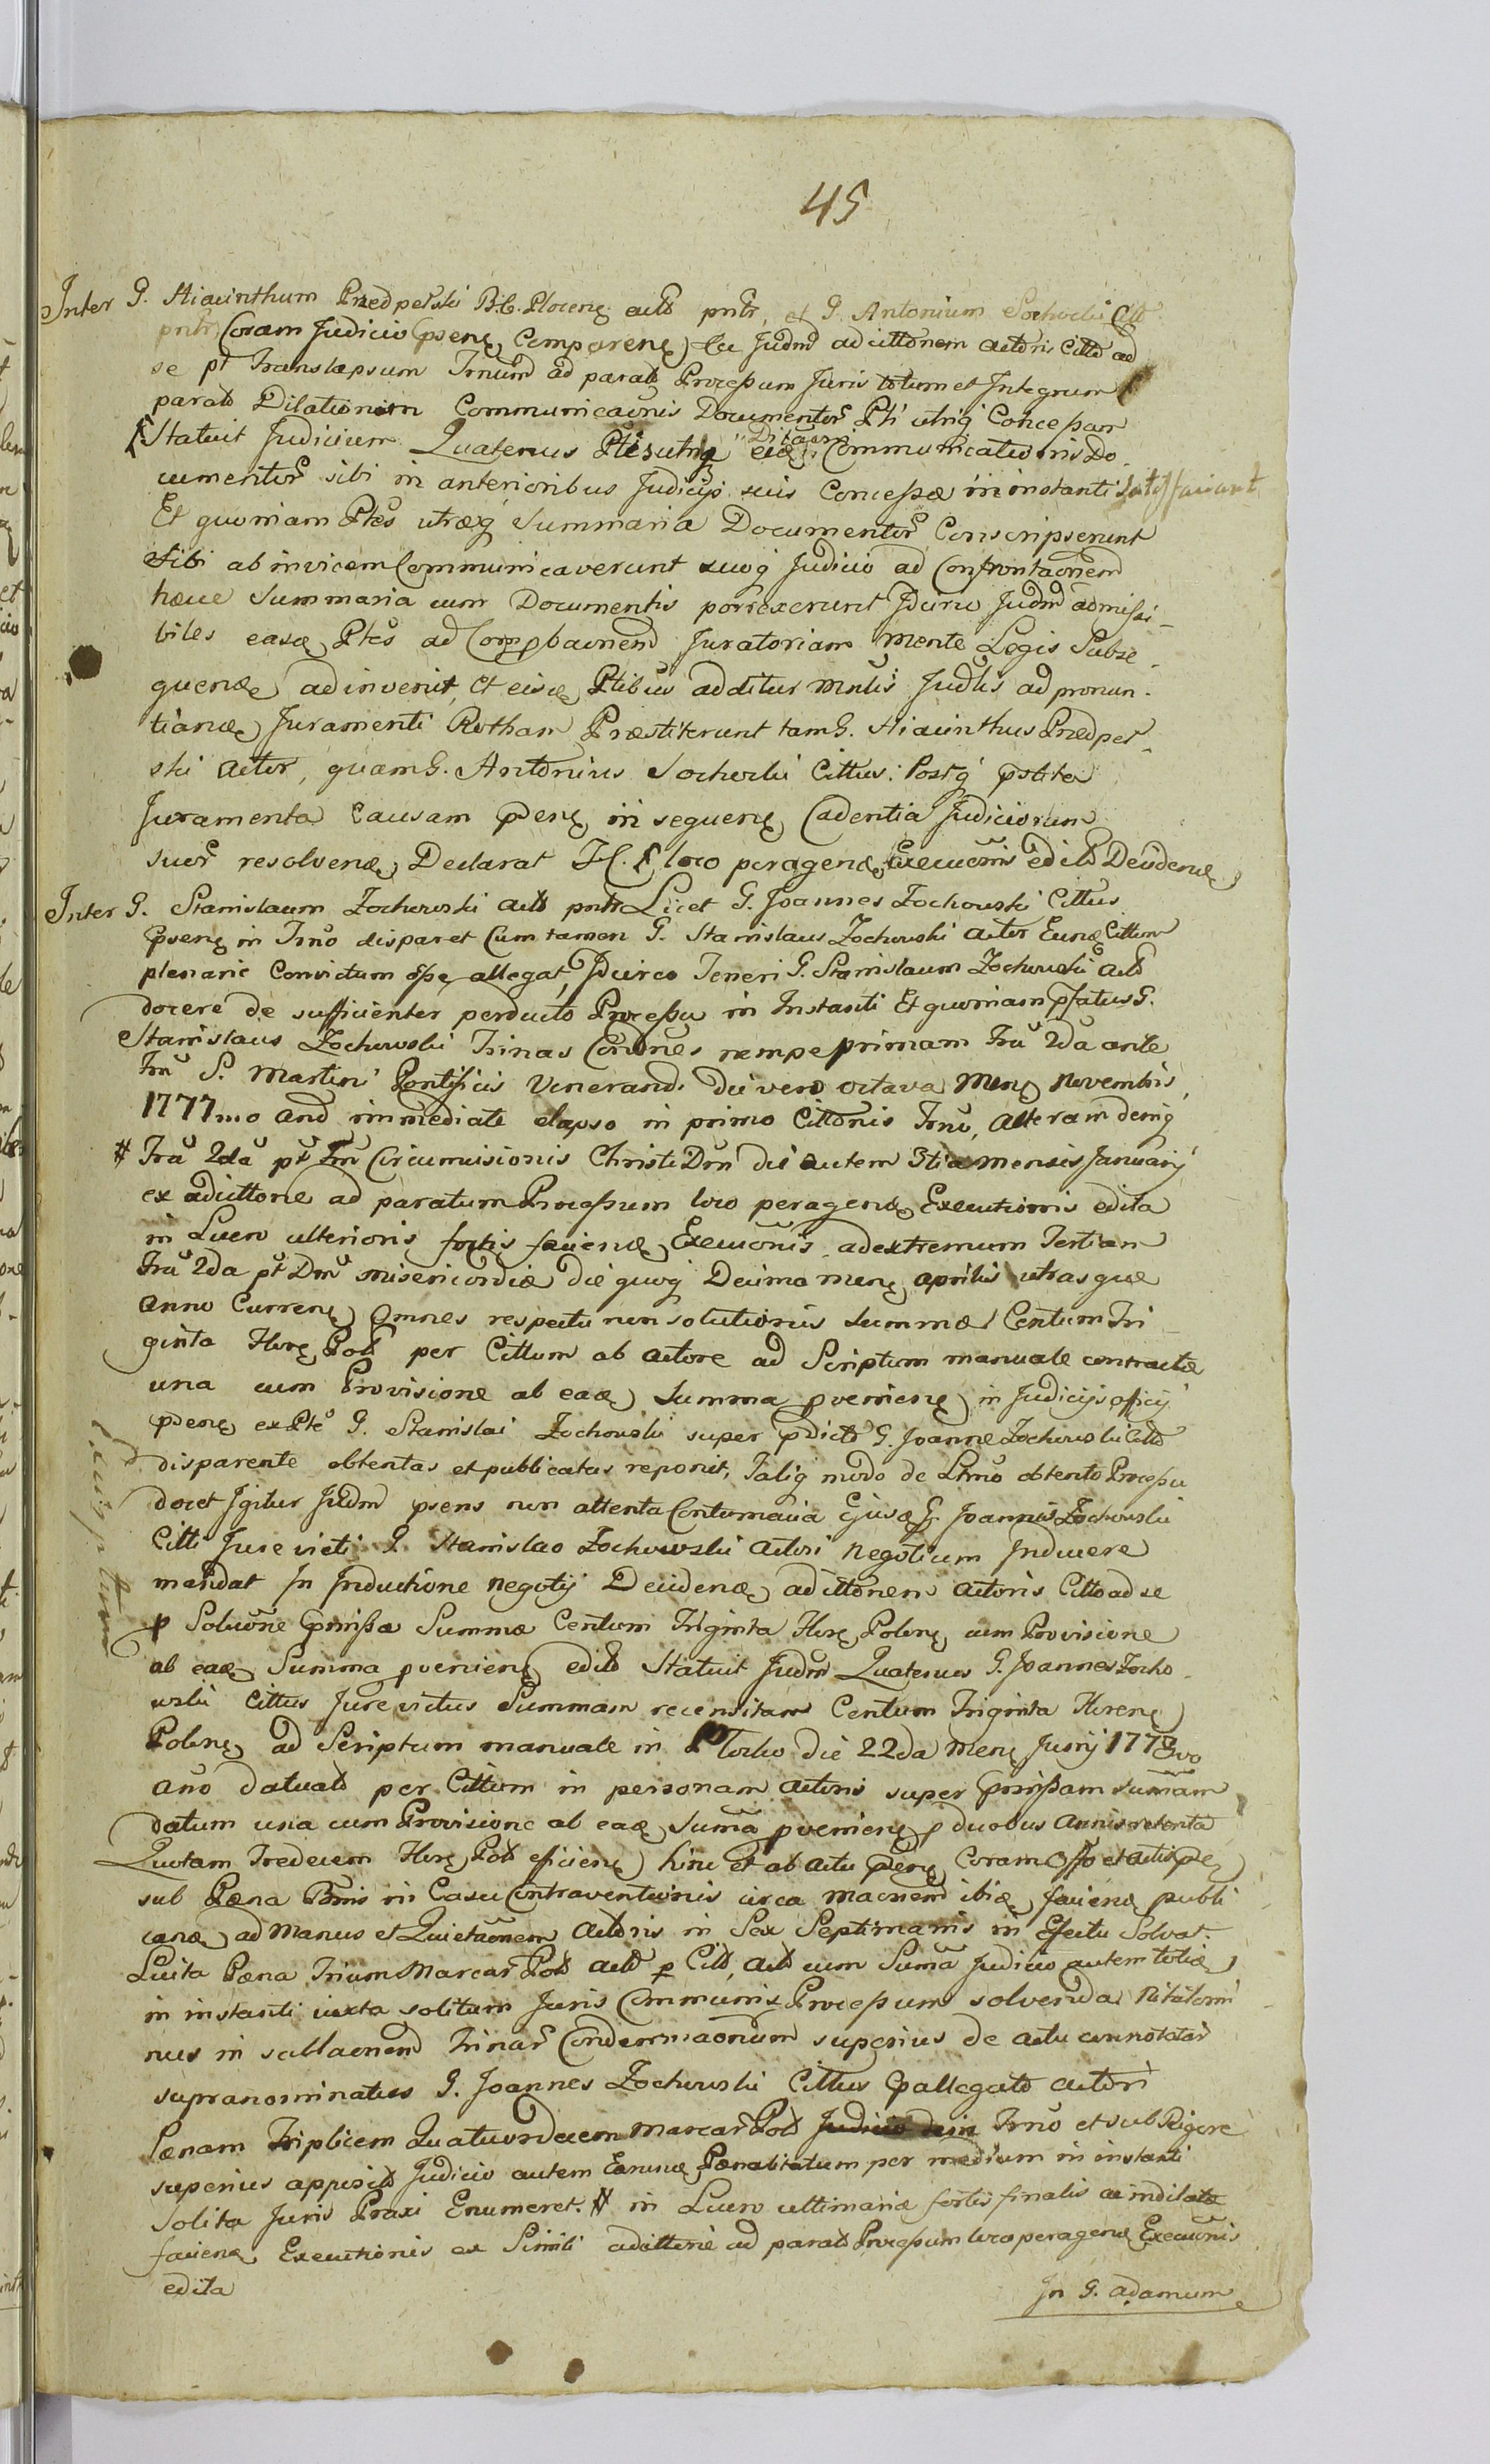 45
Inter G. Hiacinthum Przedpełski B.G. Plocenę actō pntr, et G. Antonium Sochocki Cittō
pntr Coram Judicio Gpsenę Comparenę Judm ad cittōnem actōris Cittō ad
se pt Translapsum Trnum ad paratō Processum Juris totum et Integrum
paratō Dilationem Communicaōnis Documentor Pti utriq Concessam
Statuit Judicium Quatenus Ptes utriq eidę Dilaoni Communicationis Do-
cumentor sibi in anterioribus Judicijs suis Concessæ in instanti satisfaciant
Et quoniam Ptes utræq Summaria Documentor Conscripserunt
Sibi ab invicem Communicaverunt suoq Judicio ad Confrontaōnem
hæce Summaria cum Documentis porrexerunt Jdcirco Judm admissi-
biles easdę Ptes ad Comprobaōnem Juratoriam mente Legis Subse-
quendę adinvenit, et eisdę Ptibus additur Mnlis Judlis ad pronun-
tiandę Juramenti Rotham Præstiterunt tam G. Hiacinthus Przedpeł-
ski actor, quam G. Antonius Sochocki Cittus. Postq pstita
Juramenta Causam pdenę in sequenę Cadentia Judiciorum
suor resolvendę Declarat loco peragendę Execuōnis editō Decidendę
Inter G. Stanislaum Zochowski actō pntr Licet G. Joannes Zochowski Cittus
Gpsenę in Trno disparet Cum tamen G. Stanislaus Zochowski actor Eundę Cittum
plenarie Convictum esse allegat, Jdcirco Teneri G. Stanislaum Zochowski actō
docere de sufficienter perducto Processu in Instanti Et quoniam pfatus G.
Stanislaus Zochowski Trinas Condnes nempe primam Fra 2da ante
Frm S. Martini Pontificis Venerandi die vero octava Menę Novembris
1777mo anō immediate elapso in primo Cittōnis Trno, alteram deniq
# Fra 2da pt Frm Circumcisionis Christi Dni die autem 3tia mensis Januarij
ex adcittone ad paratum Processum loco peragendę Executionis edita
in Lucro ulterioris fortis faciendę Execuōnis ad extremum Tertiam
Fra 2da pt Dnm misericordiæ die quoq Decima menę aprilis utrasque
anno Currenę Omnes respectu non solutionis summæ Centum Tri
ginta florę Polō per Cittum ab actore ad Scriptum manuale contractæ
una cum Provisione ab eadę Summa pvenienę in Judicijs officij
pdenę ex Pte G. Stanislai Zochowski super pdictō G. Joanne Zochowski Cittō
disparente obtentas et publicatas reponit, Taliq modo de Ltmo obtento Processu
docet Jgitur Judm psens non attenta Contumacia Ejusdę G. Joannis Zochowski
Citti Jure victi G. Stanislao Zochowski actori negotium Jnducere
mandat Jn Jnductione negotij Decidendę ad cittōnem actoris Cittō ad se
p Soluōne Gpmissæ Summæ Centum Triginta florę Polonę cum Provisione
ab eadę Summa pvenienę editō Statuit Judm Quatenus G. Joannes Zocho-
wski Cittus Jure victus Summam recensitam Centum Triginta florenę
Polonę ad Scriptum manuale in Plocko die 22da Menę Junij
ano datuatō per Cittum in personam actoris super Gpmissam sumam
datum una cum Provisione ab eadę suma pvenienę p duobus annis retenta
Quotam Tredecem florę Polō efficienę hinc et ab actu pdenę coram offo et actis pdę
sub Pæna Bnnis in Casu Contraventionis circa macnem ibidę faciendę publi
candę ad Manus et Quietaōnem actoris in Sex Septimanis in Effectu Solvat.
Luita Pæna Trium Marcar Polō actō p Cittō, actō cum Suma Judicio autem totidę
in instanti iuxta solitum Juris Communis Processum solvenda
nus in sublaōnem Trinar Condemnaōnum superius de actu connotatar
supranominatus G. Joannes Zochowski Cittus Gpallegatō actōri
Pænam Triplicem Quatuordecem Marcar Polō Judicio Trno et sub Rigore
superius appositō Judicio autem Earundę Pænalitatum per medium in instanti
Solita Juris Praxi Enumeret. # in Lucro ultimariæ fortis finalis ac indilatæ
faciendę Executionis ex Simili adcittone ad paratō Processum loco peragendę Execuōnis
edita
Jn G. adamum